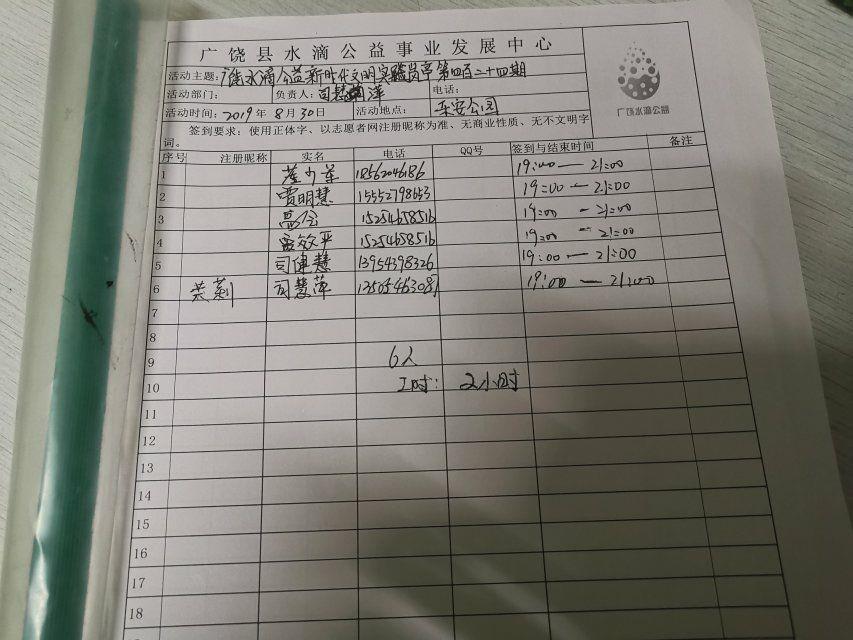 广饶县水滴公益事业发展中心
活动主题: 广饶水滴公益新时代文明实践岗亭第四百二十四期
活动部门: 负责人: 司慧萍 电话:
活动时间: 2019年 8月 30日 活动地点: 乐安公园
签到要求: 使用正体字、以志愿者网注册昵称为准、无商业性质、无不文明字
词。
广饶水滴公益
序号 注册昵称 实名 电话 QQ号 签到与结束时间 备注
1 19:00 — 21:00
2 贾明慧 15552798653 19:00 — 21:00
3 15254658516 19:00 — 21:00
4 15254658516 19:00 — 21:00
5 司健慧 13954398326 19:00 — 21:00
6 芙蓉 司慧萍 19:00 — 21:00
7
8
9 6人
10 工时: 2小时
11
12
13
14
15
16
17
18